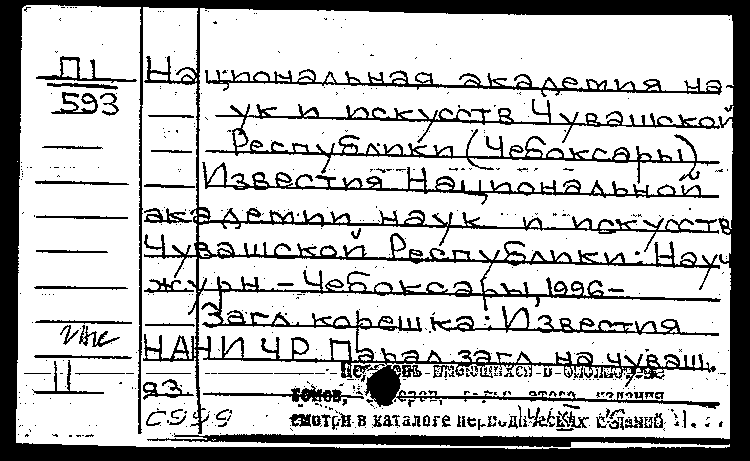 П1 Национальная академия на-
593 ук и искусств Чувашской
Республики (Чебоксары)
Известия Национальной
академии наук и искусств
Чувашской Республики: Науч
журн. – Чебоксары, 1996–
Загл. корешка: Известия
НАНИ ЧР. Парал. загл. на чуваш.
II яз.
Перечень имеющихся в библиотеке
томов, номеров, этого издания
с999 смотри в каталоге изданий